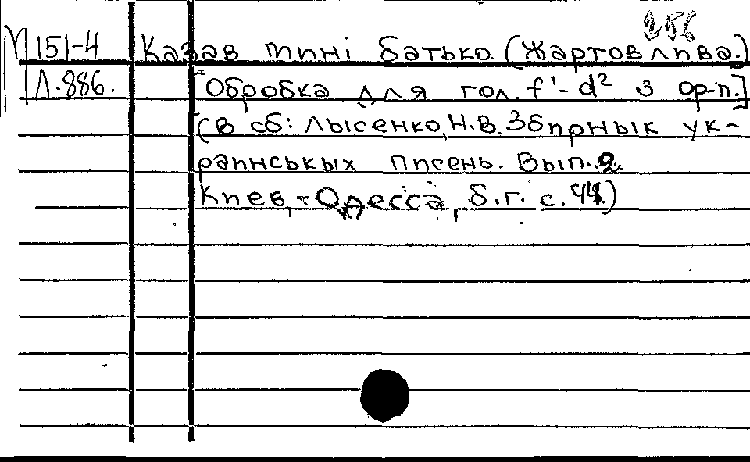 256
М 151-4 Казав мині батько. (Жартовлива.)
Л.886. [Обробка для гол. f¹-d² з ор-п.]
(в сб: Лысенко, Н.В. Збирнык ук-
раинськых писень. Вып. 2.
Киев, - Одесса, б.г. с. 44.)